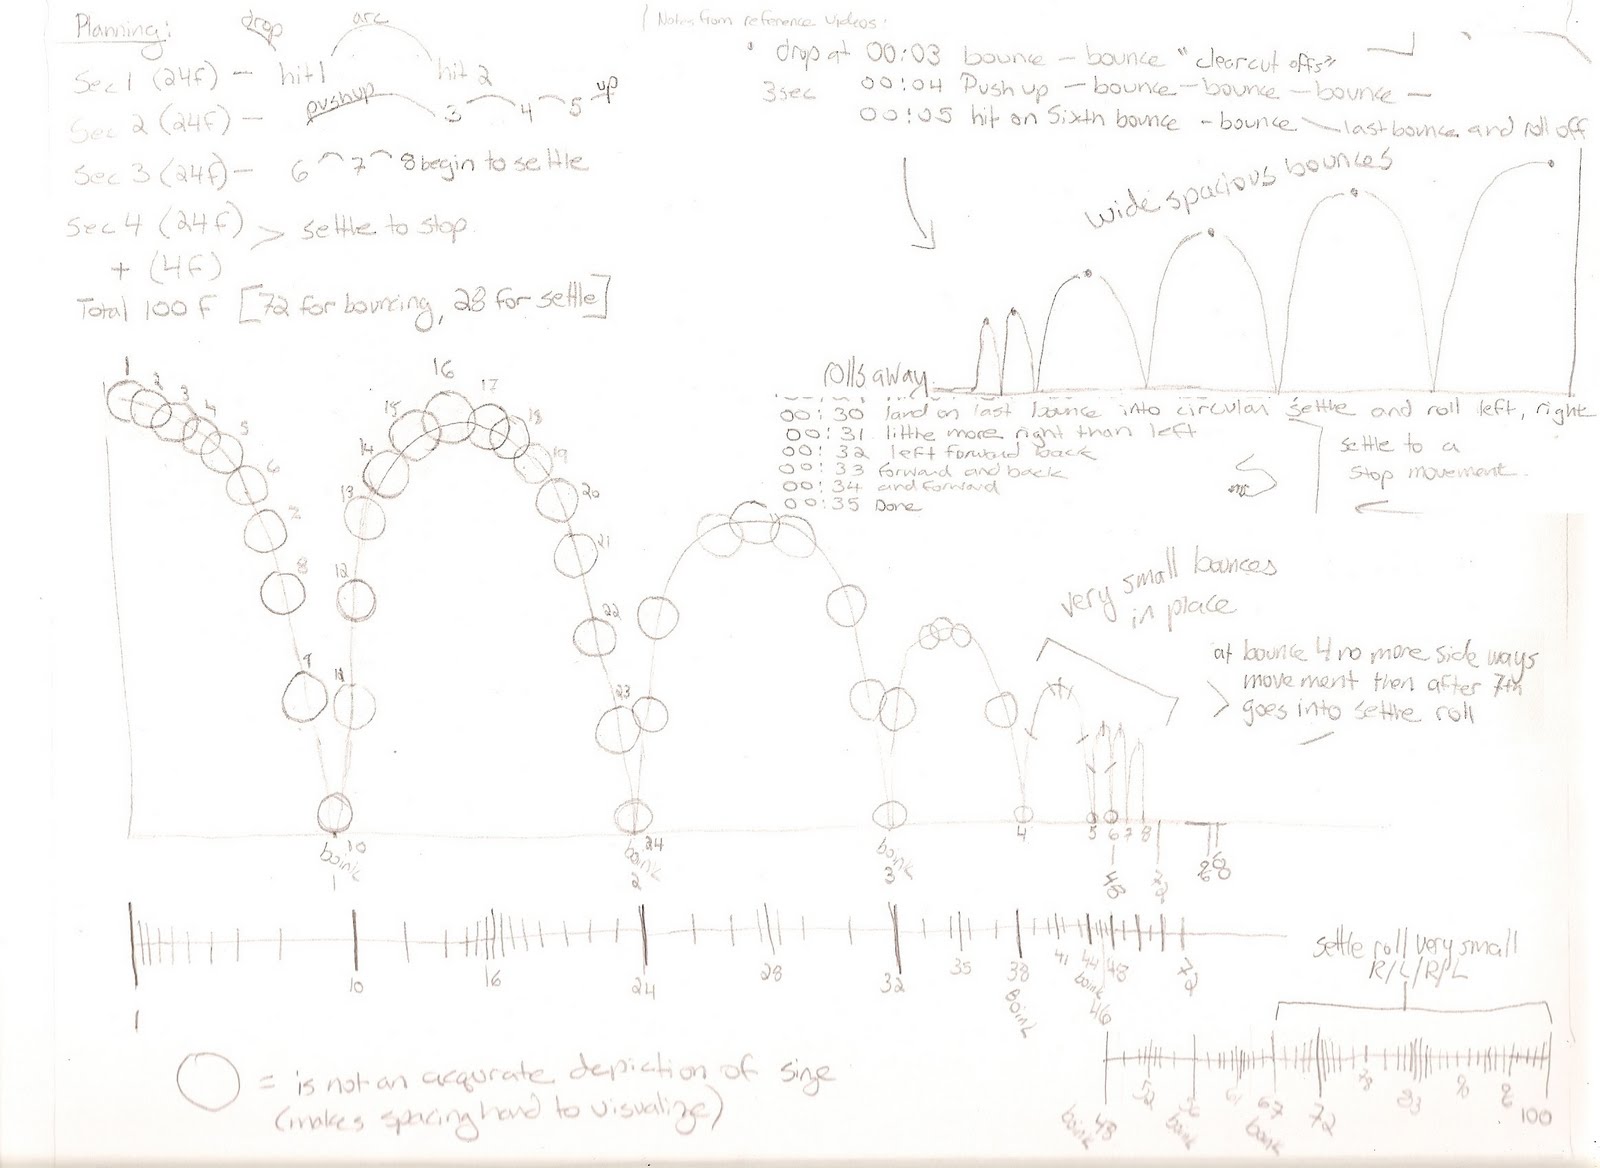 Planning:
drop
arc
Sec 1 (24f) - hit 1 hit 2
pushup up
Sec 2 (24f) - 3 4 5
Sec 3 (24f) - 6 7 8 begin to settle
Sec 4 (24f) > settle to stop.
+ (4f)
Total 100 F [72 for bouncing, 28 for settle]
Notes from reference videos:
drop at 00:03 bounce - bounce "clear cut offs"
3sec 00:04 Push up - bounce - bounce - bounce -
00:05 hit on Sixth bounce - bounce - last bounce and roll off
wide spacious bounces
rolls away
00:30 land on last bounce into circular settle and roll left, right
00:31 little more right than left
00:32 left forward back
00:33 forward and back
00:34 and forward
00:35 Done
settle to a
stop movement.
1 2 3 4 5 6 7 8 9
11 12 13 14 15 16 17 18 19 20 21 22 23
very small bounces
in place
at bounce 4 no more side ways
movement then after 7th
goes into settle roll
10 24
boink boink boink 4 5 6 7 8
1 2 3 48
1 10 16 24 28 32 35 38 41 44 48 72
boink boink 46
settle roll very small
R/L/R/L
48 52 56 61 67 72 78 83 100
boink boink boink
= is not an acqurate depiction of size
(makes spacing hard to visualize)